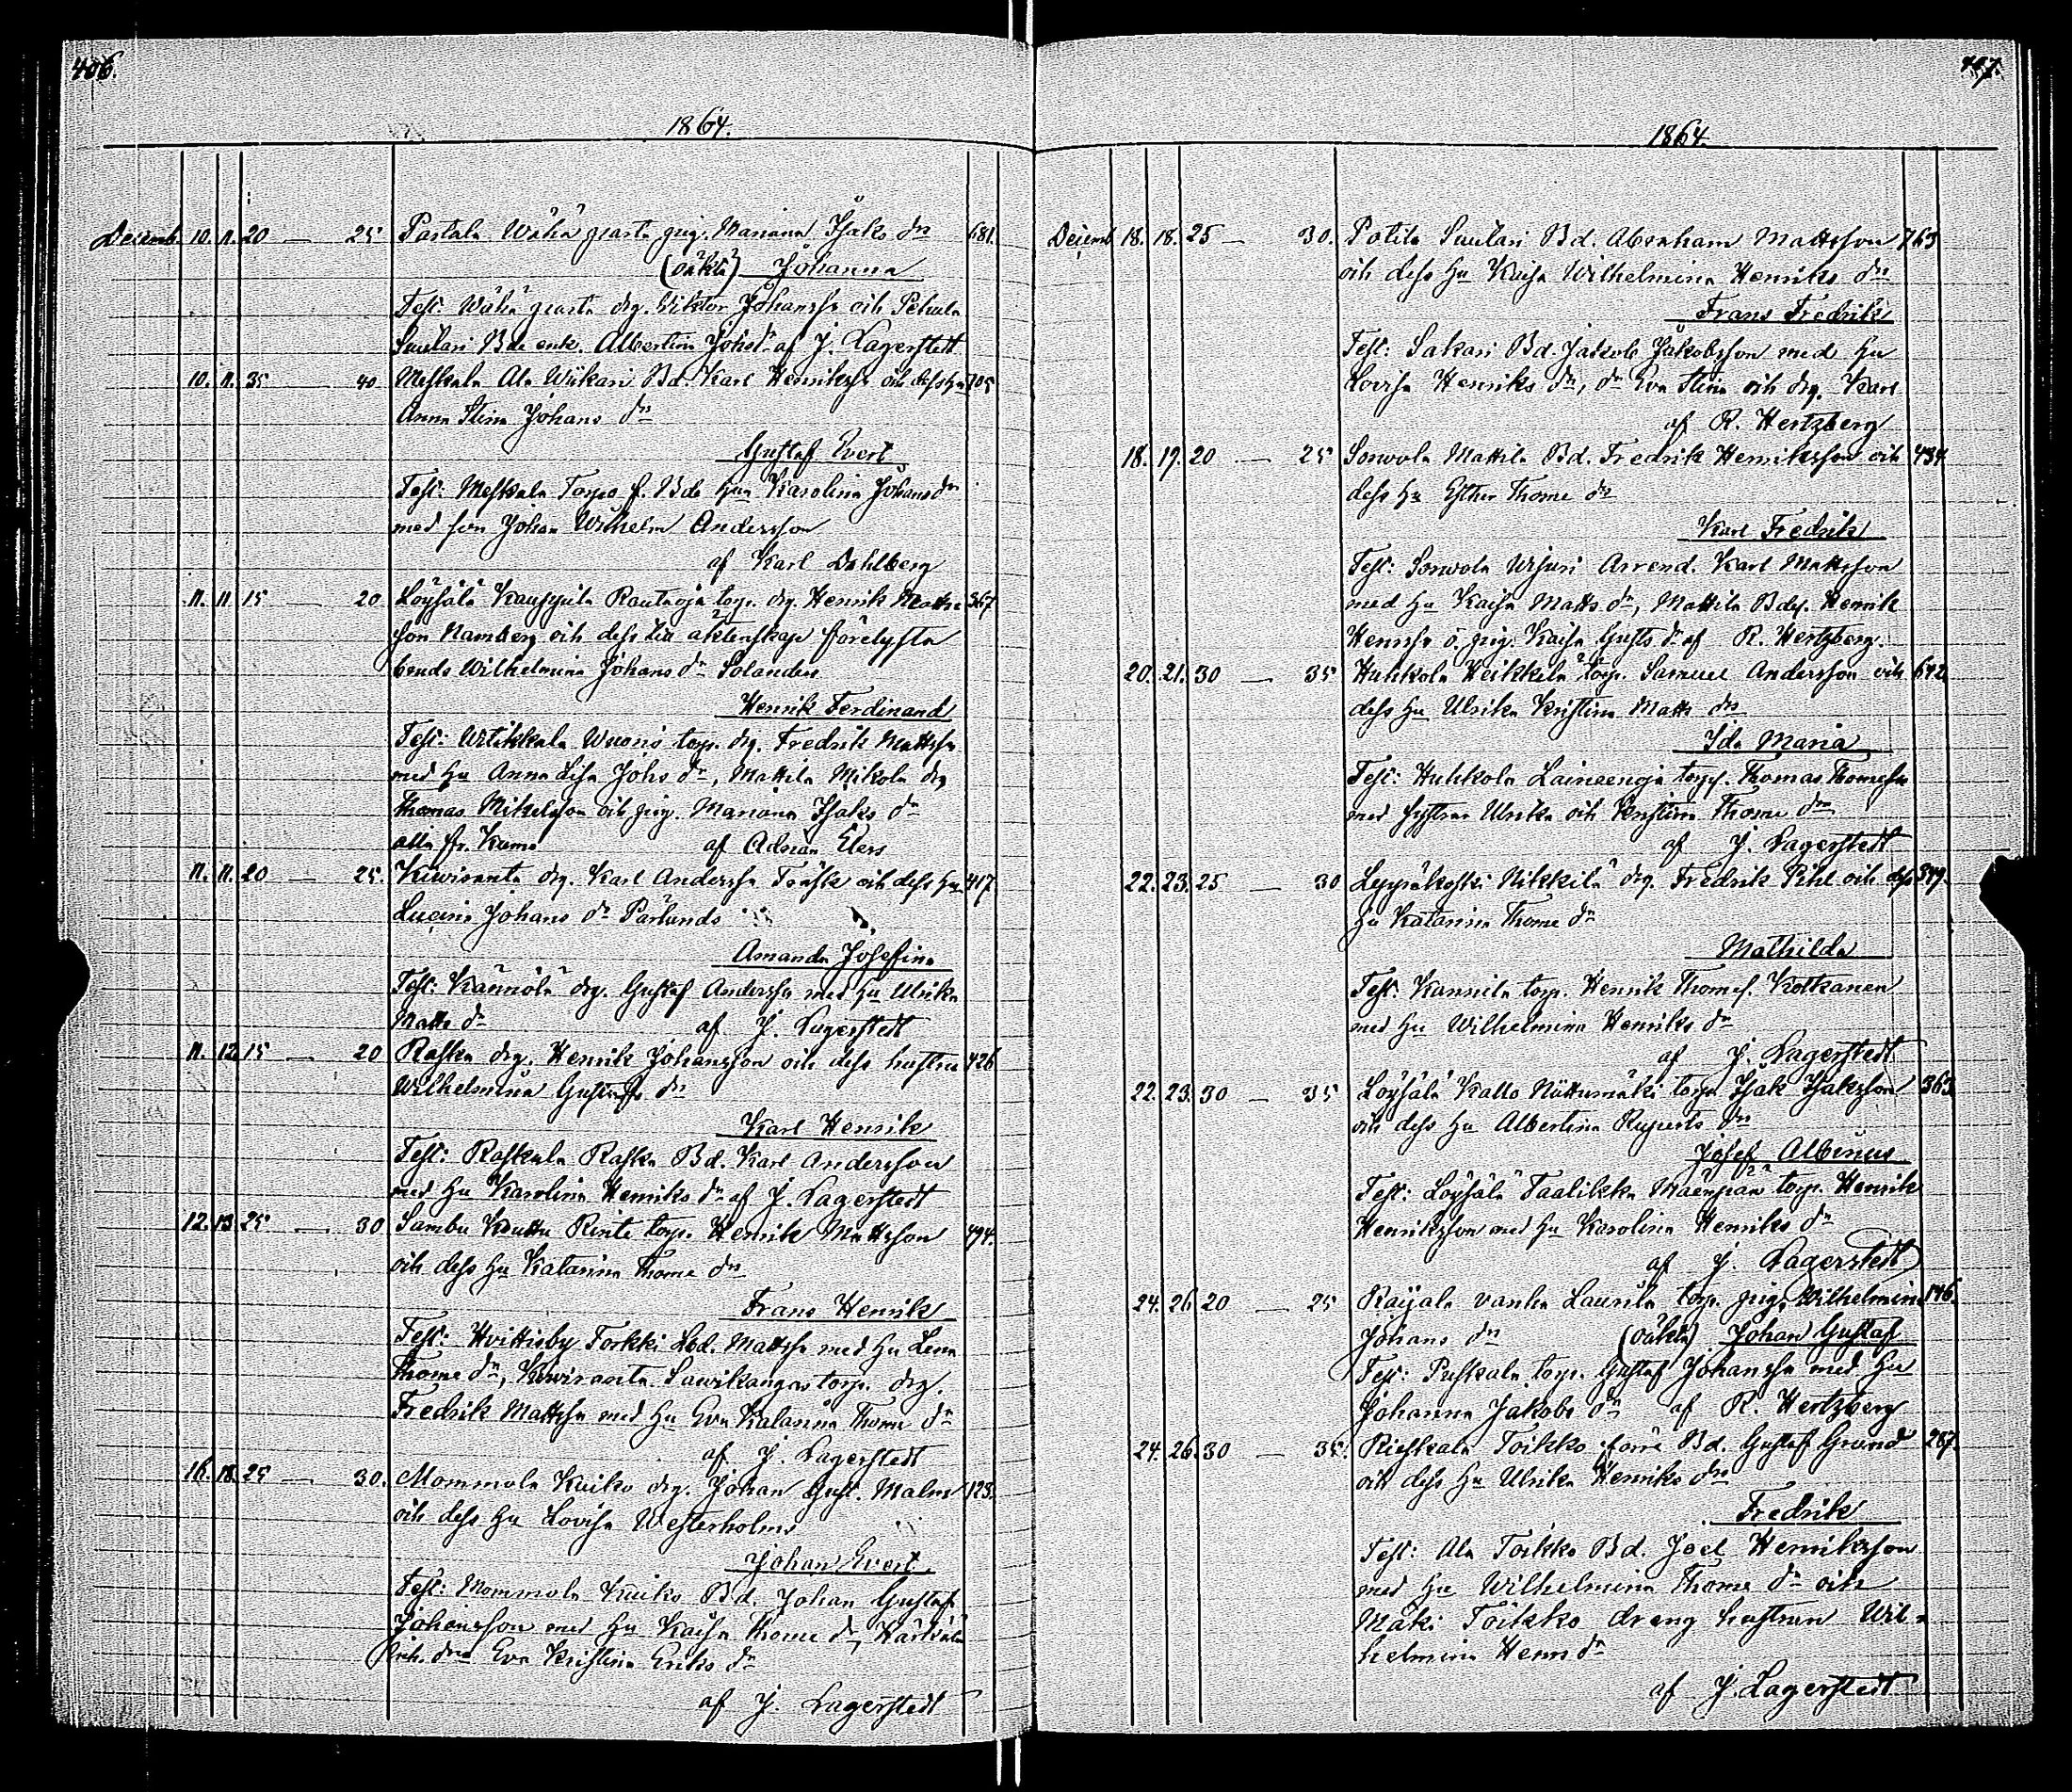 406.
1864.
Decemb. 10. 11. 20 — 25 Pastala Wähä pig. Mariana Isaks dr 681.
(oäkta) Johanna
Test: Wähä drg. Wiktor Johanss. och
Suutari Bde enk. Albertina Johs dr af J. Lagerstedt
10. 11. 35 — 40 Meskala Ala Wiikari Bd. Karl Henrikss. och dess Hu 705
Anna Stina Johans dr
Gustaf Evert
Test: Meskala Torpo f. Bde Hun Karolina Johans dr
med son Johan Wilhelm Andersson
af Karl Dahlberg
11. 11 15 — 20 Löysälä Kauppila Rautaoja torp. drg. Henrik Matts 367
son Namberg och dess till äktenskap förelysta
brud Wilhelmina Johans dr Solander
Henrik Ferdinand
Test: Witikkala torp. drg. Fredrik Mattss.
med Hu Anna Lisa Johs dr, Mattila Mikola drg
Thomas Mikelsson och pig. Mariana Isaks dr
alla fr. Kumo af Adrian Elers
11. 11. 20 — 25. Kiwiranta drg. Karl Anderss. Träsk och dess Hu 417.
Lucina Johans dr Parlunds
Amanda Josefina
Test: Kännölä drg. Gustaf Anderss. med Hu Ulrika
Matts dr af J. Lagerstedt
11. 12 15 — 20 Raska drg. Henrik Johansson och dess hustru 426
Wilhelmina Gustafs dr
Karl Henrik
Test: Raskala Raska Bd. Karl Andersson
med Hu Karolina Henriks dr af J. Lagerstedt
12. 13 25 — 30 Sambu Kouttu Rinte torp. Henrik Mattsson 494.
och dess Hu Katarina Thome dr
Frans Henrik
Test: Hvittisby Torkki Lbd. Mattss. med Hu Lena
Thome dr, Kiwiranta Sawikangas torp. drg.
Fredrik Mattss. med Hu Eva Katarina Thome dr
af J. Lagerstedt
16. 18. 25 — 30. Mommola Kuiko drg. Johan Gust. Malm 123.
och dess Hu Lovisa Westerholm
Johan Evert
Test: Mommola Kuiko Bd. Johan Gustaf
Johansson med Hu Kaisa Thome dr, Härkälä
Eva Kristina Eriks dr
af J. Lagerstedt
407.
1864.
Decemb 18. 18. 25 — 30. Potila Suutari Bd. Abraham Mattsson 763
och dess Hu Kaisa Wilhelmina Henriks dr
Frans Fredrik
Test: Sakari Bd. Jakob Jakobsson med Hu
Lovisa Henriks dr, dr Eva Stina och drg. Karl
af R. Hertzberg
18. 19. 20 — 25 Sorwola Mattila Bd. Fredrik Henriksson och 434
dess Hu Esther Thome dr
Karl Fredrik
Test: Sorwola Wisuri Arrend. Karl Mattsson
med Hu Kaisa Matts dr, Mattila Bds. Henrik
Henrss. o. pig. Kaisa Gusts dr af R. Hertzberg.
20. 21. 30 — 35 Huhkola Heikkilä torp. Samuel Andersson och 642
dess Hu Ulrika Kristina Matts dr
Ida Maria
Test: Huhkola Laineenoja torps. Thomas Thomess.
med systrar Ulrika och Kristina Thome dr
af J. Lagerstedt
22. 23. 25 — 30 Leppäkoski Nikkilä drg. Fredrik Pihl och dess 379.
Hu Katarina Thome dr
Mathilda
Test: Kannila torp. Henrik Thomes. Kotkanen
med Hu Wilhelmina Henriks dr
af J. Lagerstedt
22. 23. 30 — 35 Löysälä Kallo Niittumäki torp. Isak Isaksson 363
och dess Hu Albertina Ruperts dr
Josef Albinus
Test: Löysälä Taalikka Mäenpää torp. Henrik
Henriksson med Hu Karolina Henriks dr
af J. Lagerstedt
24. 26 20 — 25 Raijala vanha Laurila torp. pig. Wilhelmina 146.
Johans dr (oäkta) Johan Gustaf
Test: Puskala torp. Gustaf Johanss. med Hu
Johanna Jakobs dr af R. Hertzberg
24. 26. 30 — 35. Rieskala Toikko förre Bd. Gustaf Grund 287.
och dess Hu Ulrika Henriks dr
Fredrik
Test: Ala Toikko Bd. Joel Henriksson
med Hu Wilhelmina Thome dr och
Mäki Toikko dräng hustrun Wil-
helmina Henrs dr
af J. Lagerstedt